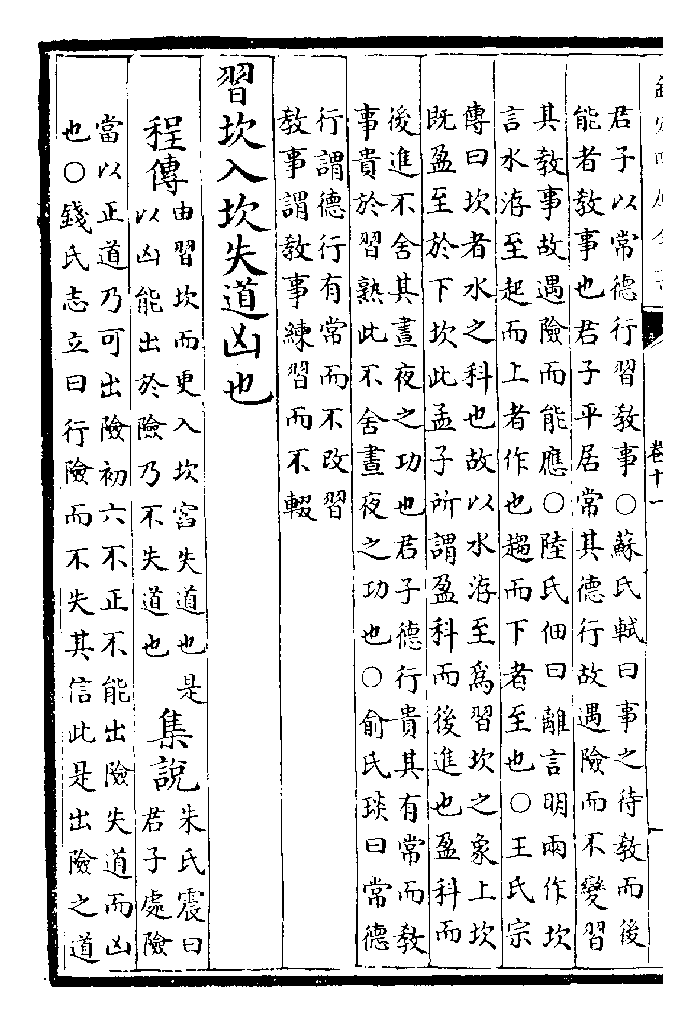 卷十一
君子以常德行習教事○蘇氏軾曰事之待教而後
能者教事也君子平居常其德行故遇險而不變習
其教事故遇險而能應○陸氏佃曰離言明兩作坎
言水洊至起而上者作也趨而下者至也○王氏宗
傳曰坎者水之科也故以水洊至爲習坎之象上坎
既盈至於下坎此孟子所謂盈科而後進也盈科而
後進不舍其晝夜之功也君子德行貴其有常而教
事貴於習熟此不舍晝夜之功也○俞氏琰曰常德
行謂德行有常而不改習
教事謂教事練習而不輟
習坎入坎失道凶也
程傳
由習坎而更入坎窞失道也是
以凶能出於險乃不失道也
集說
朱氏震曰
君子處險
當以正道乃可出險初六不正不能出險失道而凶
也○錢氏志立曰行險而不失其信此是出險之道